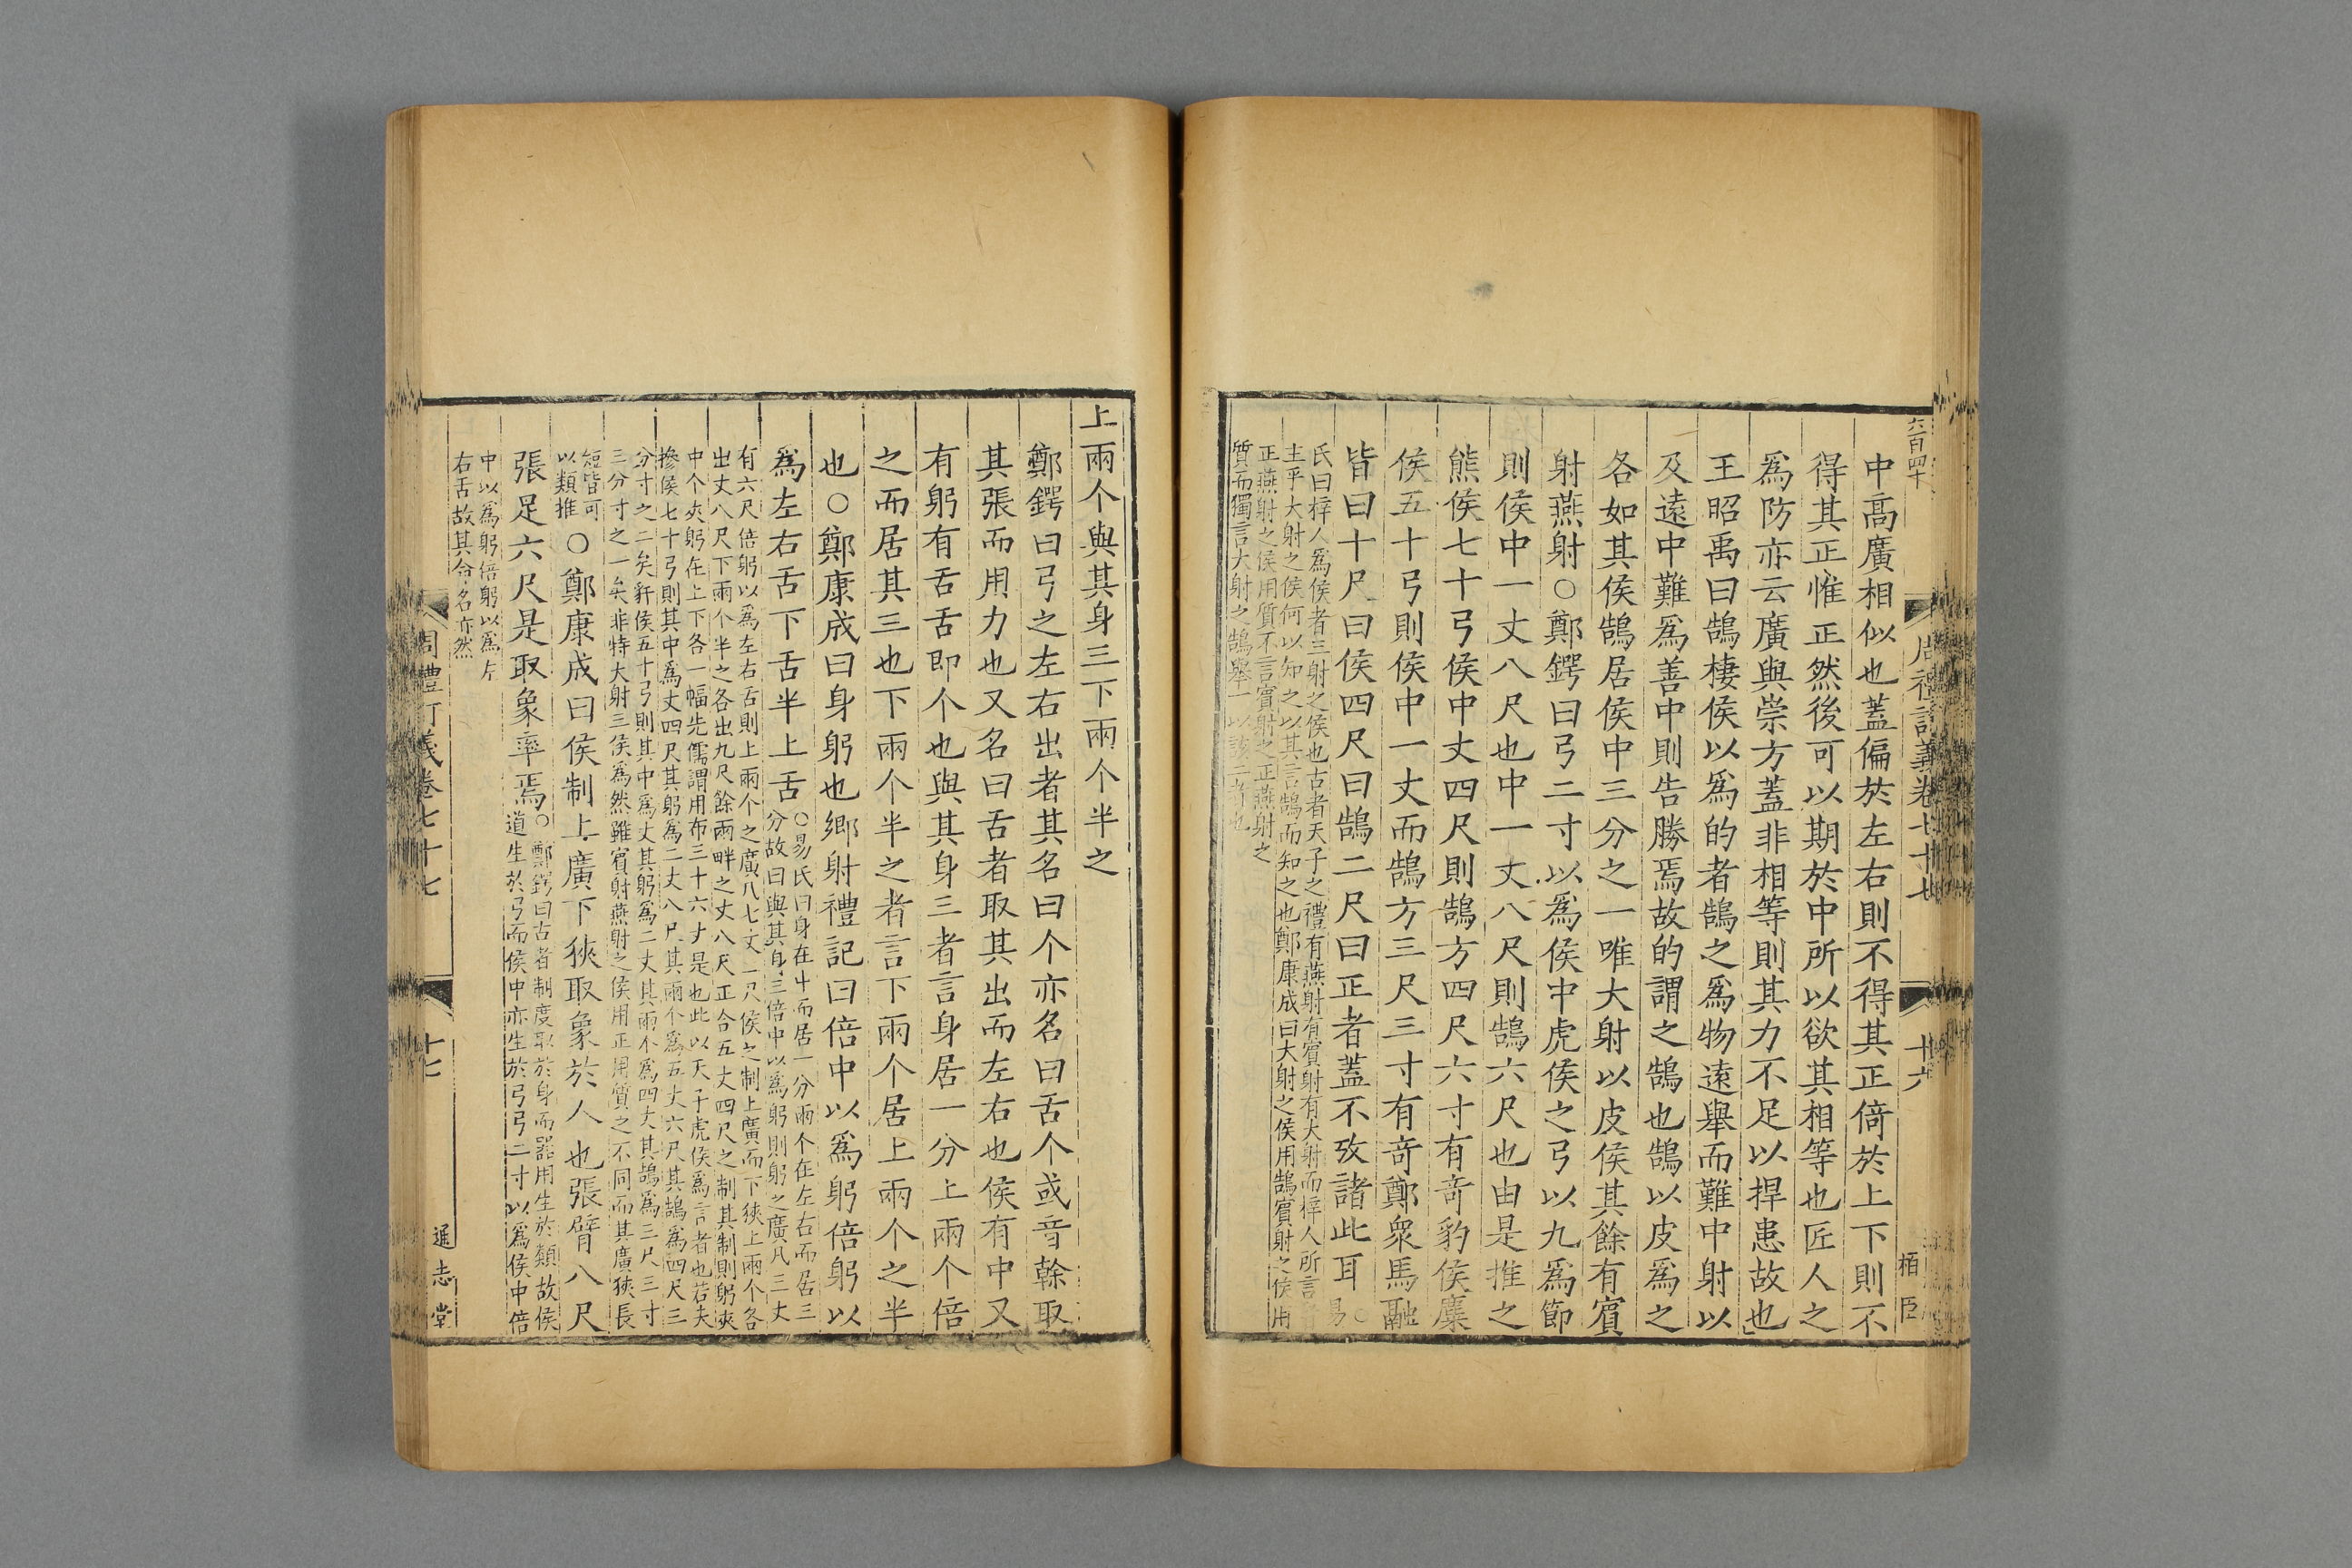 六百四十
中高廣相似也蓋偏於左右則不得其正倚於上下則不
得其正惟正然後可以期於中所以欲其相等也匠人之
爲防亦云廣與崇方蓋非相等則其力不足以捍患故也
王昭禹曰鵠棲侯以爲的者鵠之爲物遠舉而難中射以
及遠中難爲善中則告勝焉故的謂之鵠也鵠以皮爲之
各如其侯鵠居侯中三分之一唯大射以皮侯其餘有賓
射燕射○鄭鍔曰弓二寸以爲侯中虎侯之弓以九爲節
則侯中一丈八尺也中一丈八尺則鵠六尺也由是推之
熊侯七十弓侯中丈四尺則鵠方四尺六寸有竒豹侯麋
侯五十弓則侯中一丈而鵠方三尺三寸有竒鄭衆馬融
皆曰十尺曰侯四尺曰鵠二尺曰正者蓋不攷諸此耳○易
氏曰梓人爲侯者三射之侯也古者天子之禮有燕射有賓射有大射而梓人所言
主乎大射之侯何以知之以其言鵠而知之也鄭康成曰大射之侯用鵠賓射之侯用
正燕射之侯用質不言賓射之正燕射之
質而獨言大射之鵠舉一以該二者也
周禮訂義卷七十七
十六
栢臣
上兩个與其身三下兩个半之
鄭鍔曰弓之左右出者其名曰个亦名曰舌个或音榦取
其張而用力也又名曰舌者取其出而左右也侯有中又
有躬有舌舌即个也與其身三者言身居一分上兩个倍
之而居其三也下兩个半之者言下兩个居上兩个之半
也○鄭康成曰身躬也鄉射禮記曰倍中以爲躬倍躬以
爲左右舌下舌半上舌
○易氏曰身在中而居一分兩个在左右而居三
分故曰與其身三倍中以爲躬則躬之廣凡三丈
有六尺倍躬以爲左右舌則上兩个之廣凡七丈二尺侯之制上廣而下狹上兩个各
出丈八尺下兩个半之各出九尺餘兩畔之丈八尺正合五丈四尺之制其制則躬夾
中个夾躬在上下各一幅先儒謂用布三十六丈是也此以天子虎侯爲言者也若夫
摻侯七十弓則其中爲丈四尺其躬爲二丈八尺其兩个爲五丈六尺其鵠爲四尺三
分寸之二矣豻侯五十弓則其中爲丈其躬爲二丈其兩个爲四丈其鵠爲三尺三寸
三分寸之一矣非特大射三侯爲然雖賓射燕射之侯用正用質之不同而其廣狹長
短皆可
以類推
○鄭康成曰侯制上廣下狹取象於人也張臂八尺
張足六尺是取象率焉
○鄭鍔曰古者制度取於身而器用生於類故侯
道生於弓而侯中亦生於弓弓二寸以爲侯中倍
中以爲躬倍躬以爲左
右舌故其命名亦然
周禮訂義卷七十七
十七
通志堂